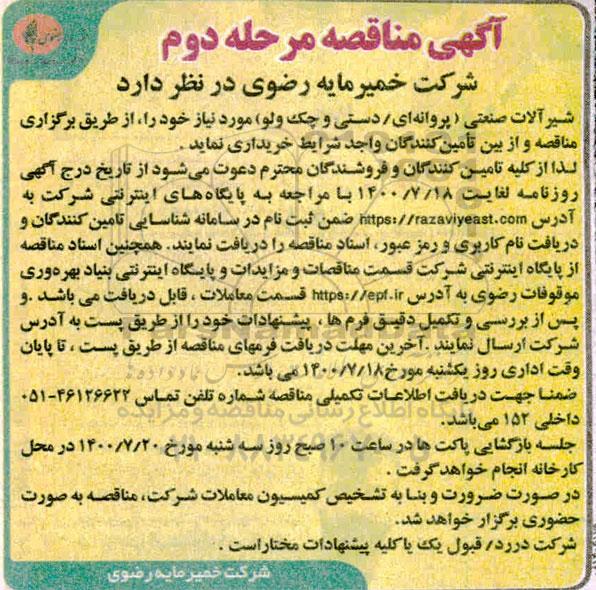 آگهی مناقصه مرحله دوم
شرکت خمیرمایه رضوی در نظر دارد
شیرآلات صنعتی ( پروانه‌ای/ دستی و چک ولو) مورد نیاز خود را، از طریق برگزاری
مناقصه و از بین تامین‌کنندگان واجد شرایط خریداری نماید .
لذا از کلیه تامین‌کنندگان و فروشندگان محترم دعوت می‌شود از تاریخ درج آگهی
روزنامه لغایت ۱۴۰۰/۷/۱۸ با مراجعه به پایگاه‌های اینترنتی شرکت به
آدرس https://razaviyeast.com ضمن ثبت نام در سامانه شناسایی تامین کنندگان و
دریافت نام کاربری و رمز عبور، اسناد مناقصه را دریافت نمایند. همچنین اسناد مناقصه
از پایگاه اینترنتی شرکت قسمت مناقصات و مزایدات و پایگاه اینترنتی بنیاد بهره‌وری
موقوفات رضوی به آدرس https://epf.ir قسمت معاملات ، قابل دریافت می باشد .و
پس از بررسی و تکمیل دقیق فرم ها ، پیشنهادات خود را از طریق پست به آدرس
شرکت ارسال نمایند .آخرین مهلت دریافت فرمهای مناقصه از طریق پست ، تا پایان
وقت اداری روز یکشنبه مورخ ۱۴۰۰/۷/۱۸ می باشد.
ضمنا جهت دریافت اطلاعات تکمیلی مناقصه شماره تلفن تماس ۴۶۱۲۶۶۲۲-۰۵۱
داخلی ۱۵۲ می‌باشد.
جلسه بازگشایی پاکت ها در ساعت ۱۰ صبح روز سه شنبه مورخ ۱۴۰۰/۷/۲۰ در محل
کارخانه انجام خواهد گرفت .
در صورت ضرورت و بنا به تشخیص کمیسیون معاملات شرکت، مناقصه به صورت
حضوری برگزار خواهد شد.
شرکت دررد/ قبول یک یا کلیه پیشنهادات مختار است .
شرکت خمیرمایه رضوی